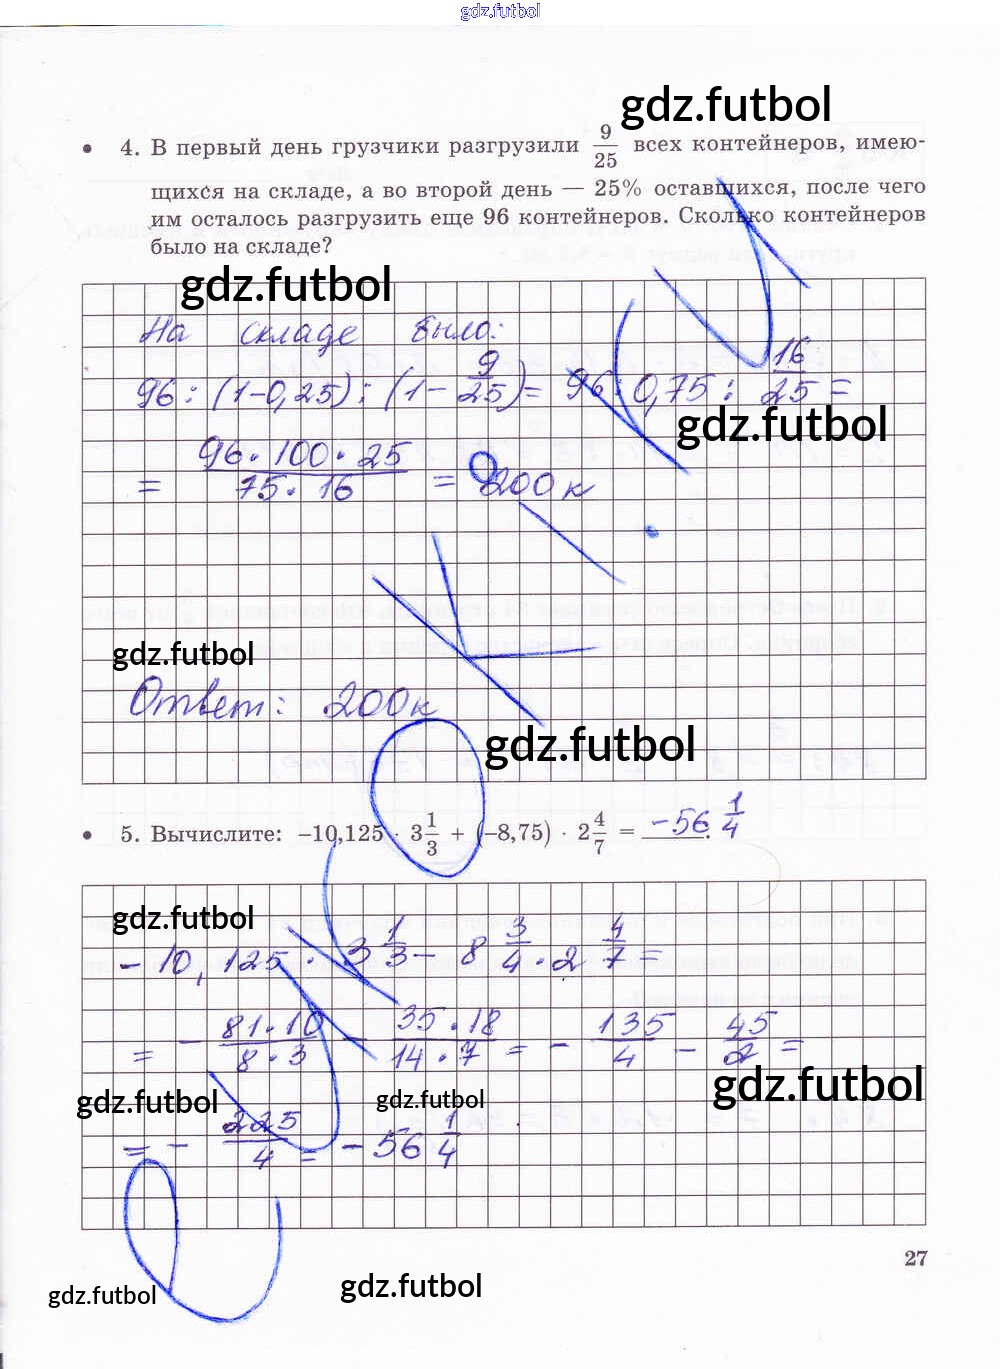 gdz.futbol
gdz.futbol
4. В первый день грузчики разгрузили 9/25 всех контейнеров, имею-
щихся на складе, а во второй день — 25% оставшихся, после чего
им осталось разгрузить еще 96 контейнеров. Сколько контейнеров
было на складе?
gdz.futbol
На складе было:
96 : (1-0,25) : (1 - 9/25) = 96 : 0,75 : 16/25 =
gdz.futbol
= 96 · 100 · 25 / 75 · 16 = 200 к
gdz.futbol
Ответ: 200к
gdz.futbol
5. Вычислите: –10,125 · 3 1/3 + (–8,75) · 2 4/7 = -56 1/4.
gdz.futbol
- 10,125 · 3 1/3 - 8 3/4 · 2 4/7 =
= - 81 · 10 / 8 · 3 - 35 · 18 / 14 · 7 = - 135/4 - 45/2 =
gdz.futbol
gdz.futbol
gdz.futbol
= - 225/4 = - 56 1/4
27
gdz.futbol
gdz.futbol